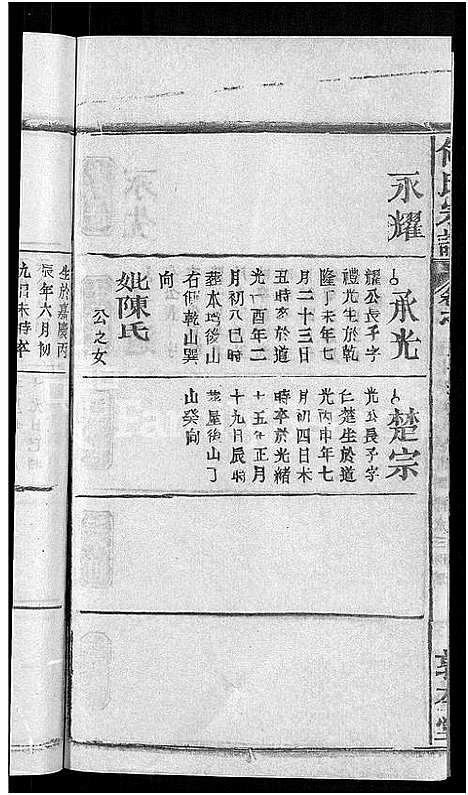 氏宗譜
永耀
承光
耀公長子字
禮光生於乾
隆丁未年七
月二十三日
丑時亥於道
光一酉年二
月初八巳時
葬水塢後山
右側乾山巽
向
妣陳氏
公之女
楚宗
光公長子字
仁楚生於道
光丙申年七
月初四日未
時卒於光緒
十五年正月
十九日辰時
葬屋後山丁
山癸向
生於嘉慶丙
辰年六月初
九日未時卒